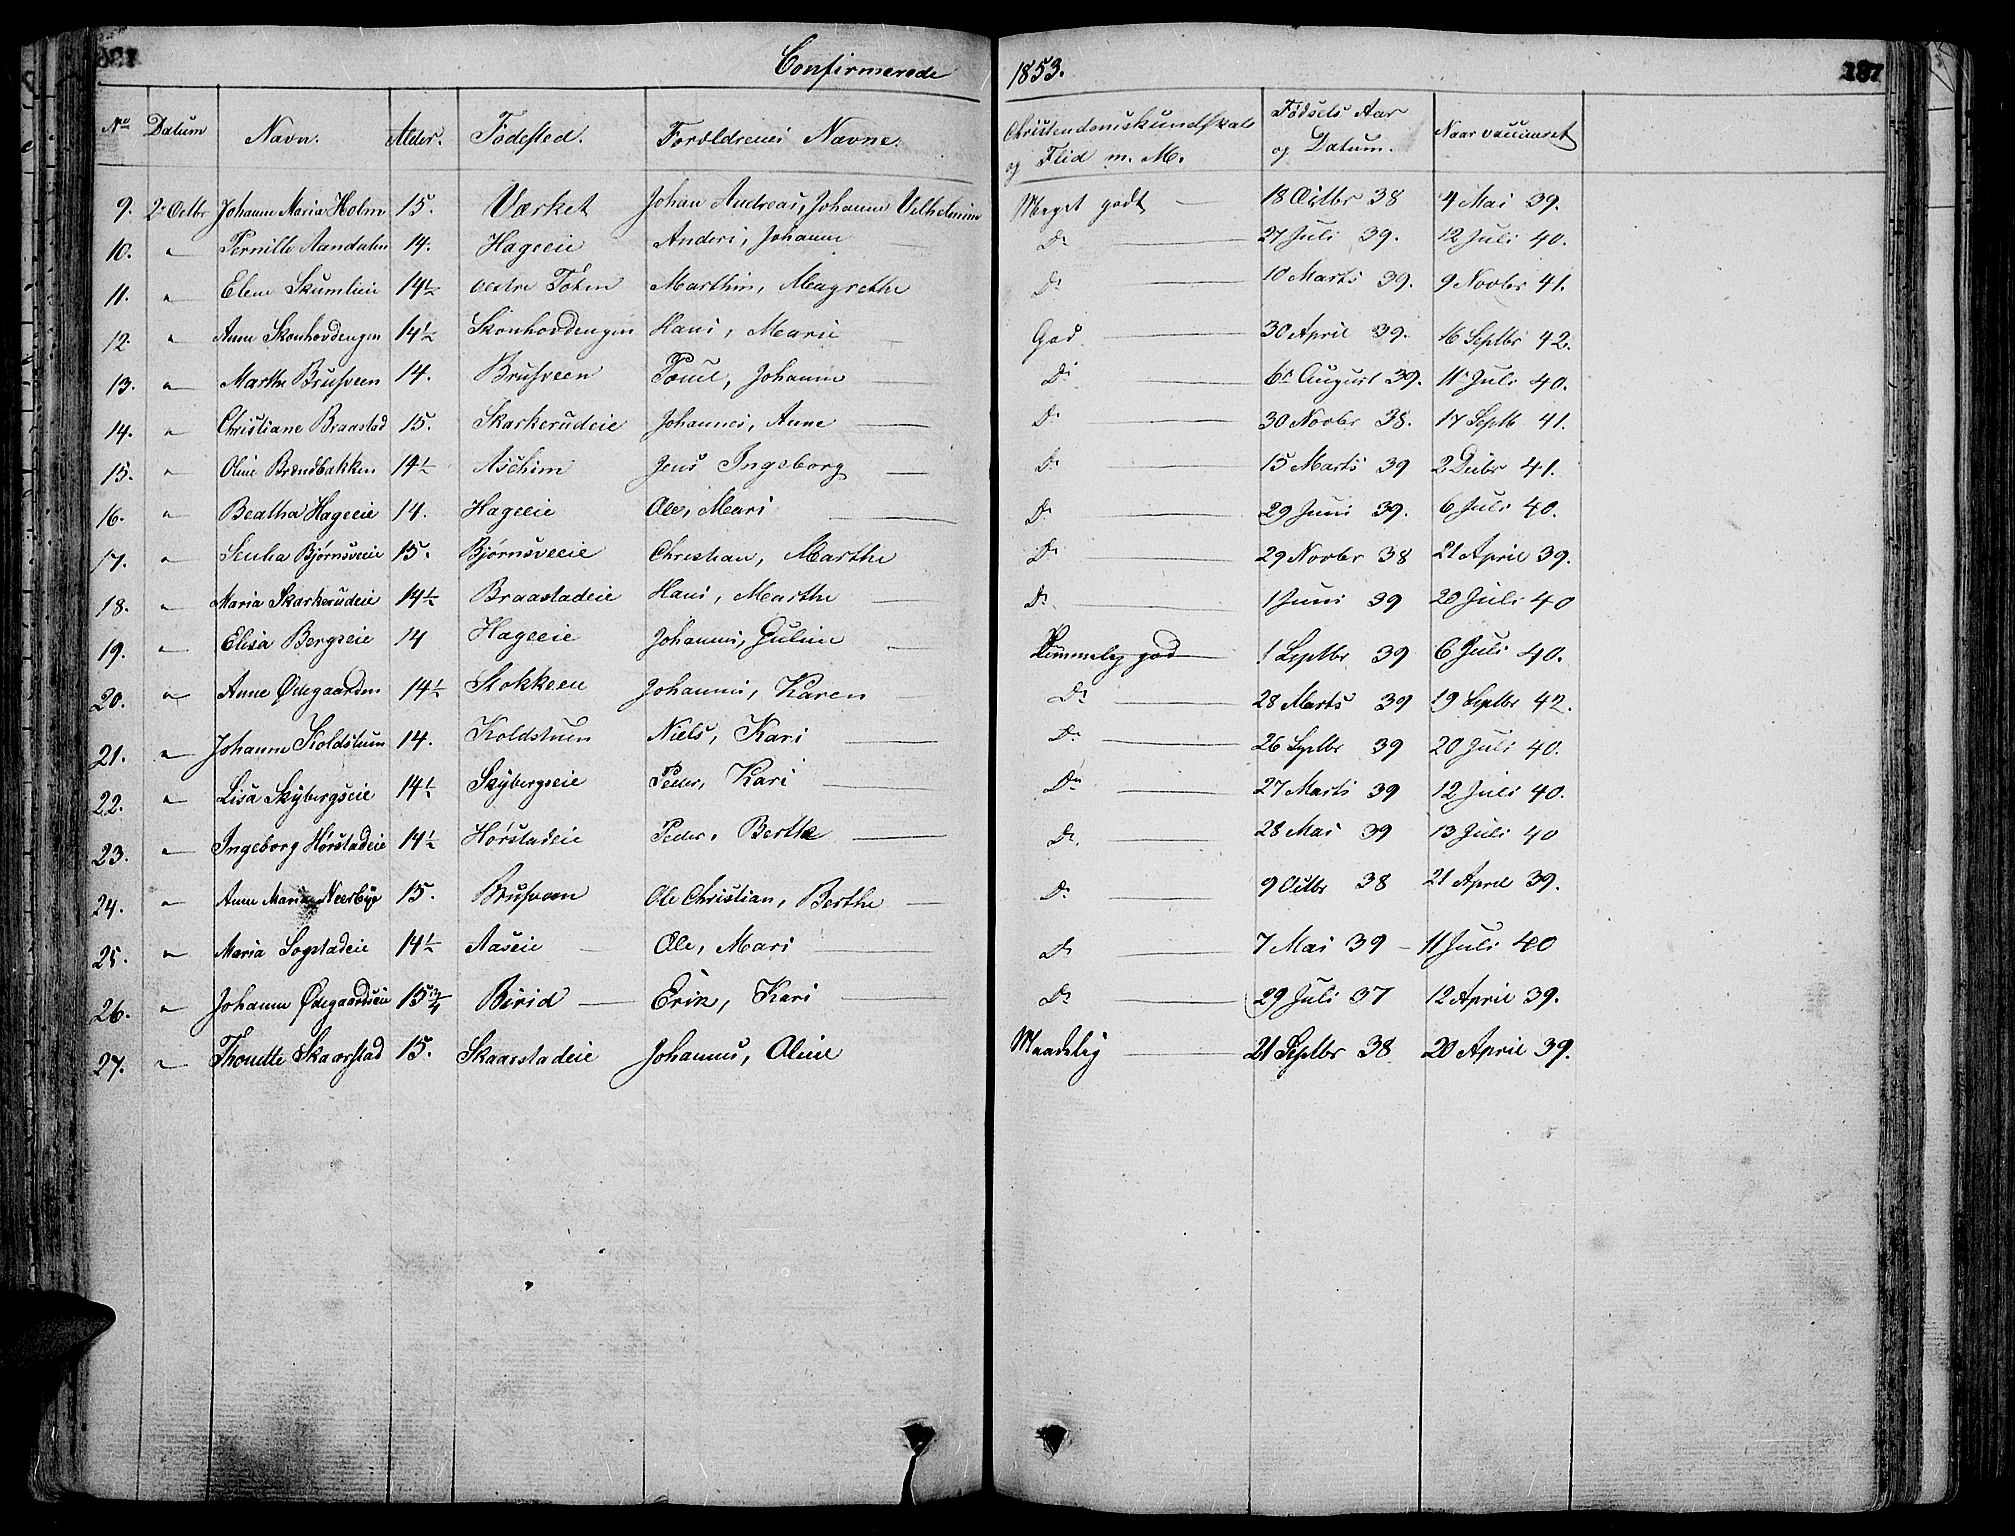 Confirmerede 1853. 187
No Datum Navn. Alder. Fødested. Forældrenes Navne. Christendomskundskab og Flid m. M. Fødsels Aar og Datum. Naar vaccineret
9. 2 Octbr Johanne Maria Holm 15. Værket Johan Andreas, Johanne Vilhelmine Meget godt 18 Octbr 38 4 Mai 39.
10. " Pernille Aandalen 14. Hageeie Anders, Johanne Do 27 Juli 39. 12 Juli 40.
11. " Elene Skumlien 14½ vestre Toten Marthin, Magrethe Do 10 Marts 39. 9 Novbr 41.
12 " Anne Skonhovdengen 14½ Skonhovdengen Hans, Marie God 30 April 39. 16 Septbr 42.
13. " Marthe Brusveen 14. Brusveen Poul, Johanne Do 6 August 39. 11 Juli 40.
14. " Christiane Braastad 15. Skarkerudeie Johannes, Anne Do 30 Novbr 38. 17 Septb 41.
15. " Oline Brændbakken 14½ Aschim Jens Ingeborg Do 15 Marts 39 2 Decbr 41.
16. " Beatha Hageeie 14. Hageeie Ole, Mari Do 29 Juni 39. 6 Juli 40.
17. " Bjørnsveeie 15. Bjørnsveeie Christian, Marthe Do 29 Novbr 38 21 April 39.
18. " Maria Skarkerudeie 14½ Braastadeie Hans, Marthe Do 1 Juni 39 20 Juli 40
19. " Elisa Bergseie 14 Hageeie Johannes, Guline Temmelig god 1 Septbr 39 6 Juli 40.
20. " Anne Ødegaarden 14½ Stokkeeie Johannes, Karen Do 28 Marts 39 19 Septbr 42.
21. " Johanne Koldstum 14. Koldstum Niels, Kari Do 26 Septbr 39 20 Juli 40.
22. " Lisa Skybergseie 14½ Skybergseie Peder, Kari Do 27 Marts 39 12 Juli 40.
23. " Ingeborg Hørstadeie 14½ Hørstadeie Peder, Berthe Do 28 Mai 39 13 Juli 40
24. " Anne Maria Neerbye 15. Brusveen Ole Christian, Berthe Do 9 Octbr 38 21 April 39.
25. " Maria Sogstadeie 14½ Aaseie Ole, Mari Do 7 Mai 39 – 11 Juli 40
26. " Johanne Ødegaardseie 15¾ Birid Erik, Kari Do 29 Juli 37 12 April 39.
27. " Thonette Skaarstad 15. Skaarstadeie Johannes, Oline Maadelig 21 Septbr 38 20 April 39.